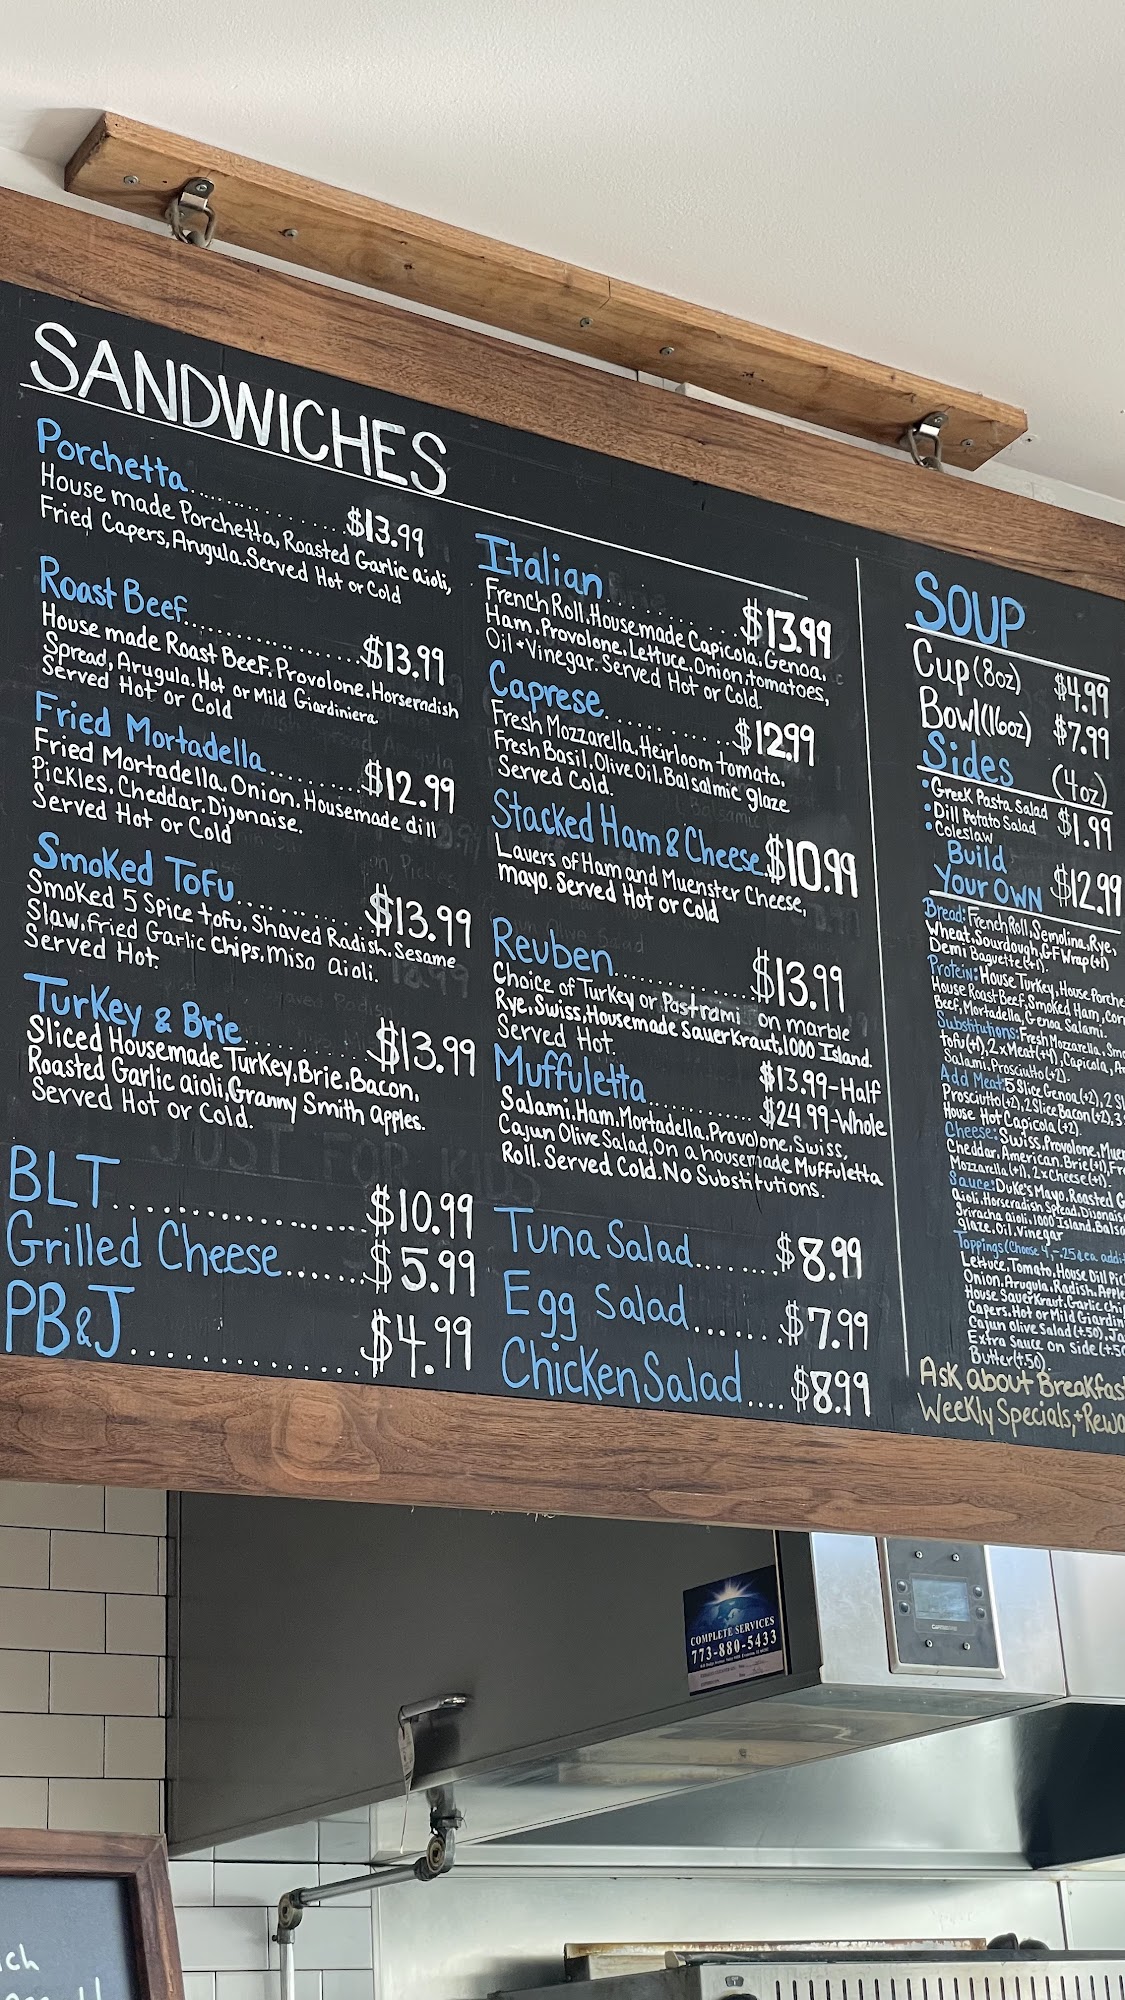 SANDWICHES
Porchetta.................$13.99
House made Porchetta, Roasted Garlic aioli,
Fried Capers, Arugula. Served Hot or Cold
Roast Beef.................$13.99
House made Roast Beef. Provolone. Horseradish
Spread, Arugula. Hot or Mild Giardiniera
Served Hot or Cold
Fried Mortadella..........$12.99
Fried Mortadella. Onion. Housemade dill
Pickles. Cheddar. Dijonaise.
Served Hot or Cold
Smoked Tofu.............$13.99
Smoked 5 Spice tofu. Shaved Radish. Sesame
Slaw, fried Garlic Chips, miso aioli.
Served Hot.
Turkey & Brie.............$13.99
Sliced Housemade Turkey, Brie. Bacon,
Roasted Garlic aioli, Granny Smith apples.
Served Hot or Cold.
BLT.................$10.99
Grilled Cheese.......$5.99
PB&J...............$4.99
Italian.............$13.99
French Roll. Housemade Capicola. Genoa.
Ham. Provolone. Lettuce. Onion. tomatoes,
Oil + Vinegar. Served Hot or Cold.
Caprese.............$12.99
Fresh Mozzarella. Heirloom tomato,
Fresh Basil, Olive Oil, Balsalmic glaze
Served Cold.
Stacked Ham & Cheese.$10.99
Layers of Ham and Muenster Cheese,
mayo. Served Hot or Cold
Reuben.............$13.99
Choice of Turkey or Pastrami on marble
Rye, Swiss, Housemade Sauerkraut, 1000 Island.
Served Hot.
Muffuletta..........$13.99-Half
$24.99-Whole
Salami. Ham. Mortadella. Provolone, Swiss,
Cajun Olive Salad, On a housemade Muffuletta
Roll. Served Cold. No Substitutions.
Tuna Salad.......$8.99
Egg Salad.......$7.99
Chicken Salad....$8.99
SOUP
Cup (8oz) $4.99
Bowl (16oz) $7.99
Sides (4oz)
•Greek Pasta Salad
•Dill Potato Salad $1.99
•Coleslaw
Build
Your OWN $12.99
Bread: French Roll, Semolina, Rye,
Wheat, Sourdough, GF Wrap (+1)
Demi Baguette (+1).
Protein: House Turkey, House Porche
House Roast Beef, Smoked Ham, Cor
Beef, Mortadella, Genoa Salami.
Substitutions: Fresh Mozzarella, Smo
tofu (+1), 2xMeat (+4), Capicola, A
Salami, Prosciutto (+2).
Add Meat: 5 Slice Genoa (+2), 2 Sl
Prosciutto (+2), 2 Slice Bacon (+2), 3
House Hot Capicola (+2).
Cheese: Swiss, Provolone, Muen
Cheddar, American, Brie (+1), Fr
Mozzarella (+1), 2x Cheese (+1).
Sauce: Duke's Mayo, Roasted G
aioli, Horseradish Spread, Dijonais
Sriracha aioli, 1000 Island, Balsa
glaze, Oil, Vinegar
Toppings (Choose 4, -.25¢ ea. addi
Lettuce, Tomato, House Dill Pic
Onion, Arugula, Radish, Apple
House Sauerkraut, Garlic Chi
Capers, Hot or Mild Giardin
Cajun Olive Salad (+.50), Ja
Extra Sauce on side (+.50
Butter (+.50).
Ask about Breakfas
Weekly Specials, + Rewa
COMPLETE SERVICES
773-880-5433
ch